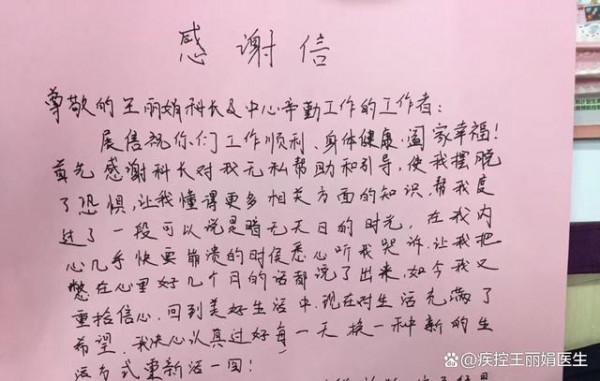 感谢信
尊敬的王丽娟科长及中心辛勤工作的工作者:
展信祝你们工作顺利、身体健康、阖家幸福!
首先感谢科长对我无私帮助和引导,使我摆脱
了恐惧,让我懂得更多相关方面的知识,帮我度
过了一段可以说是暗无天日的时光,在我内
心几乎快要崩溃的时侯悉心听我哭诉,让我把
憋在心里好几个月的话都说了出来,如今我又
重拾信心,回到美好生活中,现在对生活充满了
希望,我决心认真过好每一天换一种新的生
活方式重新活一回!
@疾控王丽娟医生